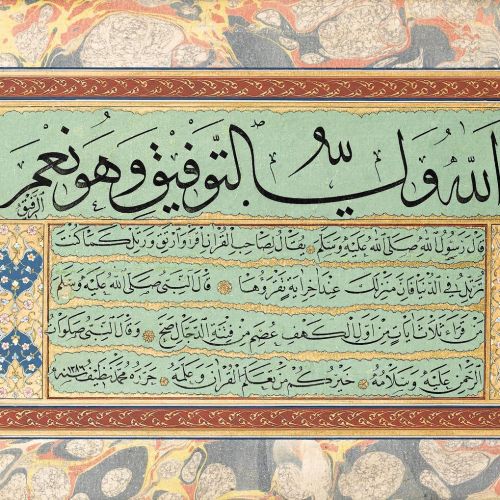 الله ولي التوفيق وهو نعم الرفيق
قال رسول الله صلى الله عليه وسلم يقال لصاحب القرآن اقرأ وارتق ورتل كما كنت
ترتل في الدنيا فان منزلك عند اخر آية تقرؤها قال النبي صلى الله عليه وسلم
من قرأ ثلاث آيات من اول الكهف عصم من فتنة الدجال صح وقال النبي صلوات
الرحمن عليه وسلامه خيركم من تعلم القرآن وعلمه حرره محمد نظيف